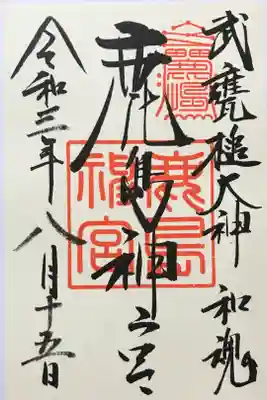 武甕槌大神 和魂
鹿島神宮
鹿島神宮
令和三年八月十五日